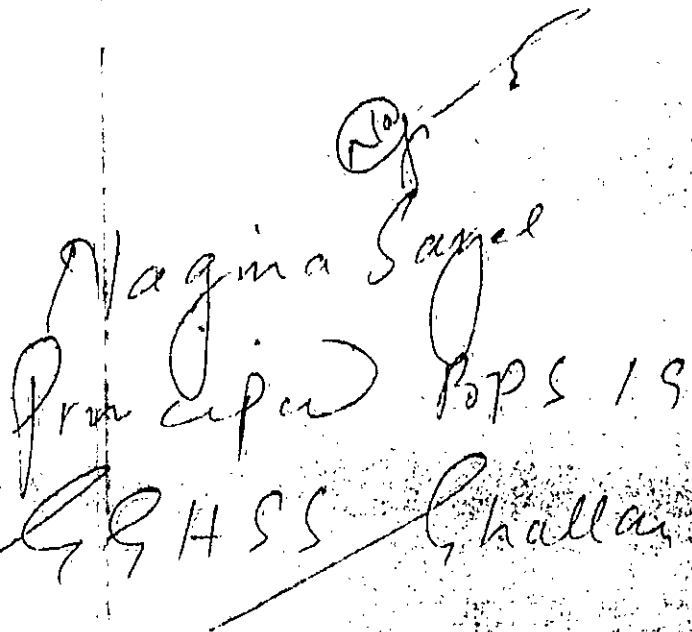 Nagina
Principal BPS 19
GGHSS Ghallan